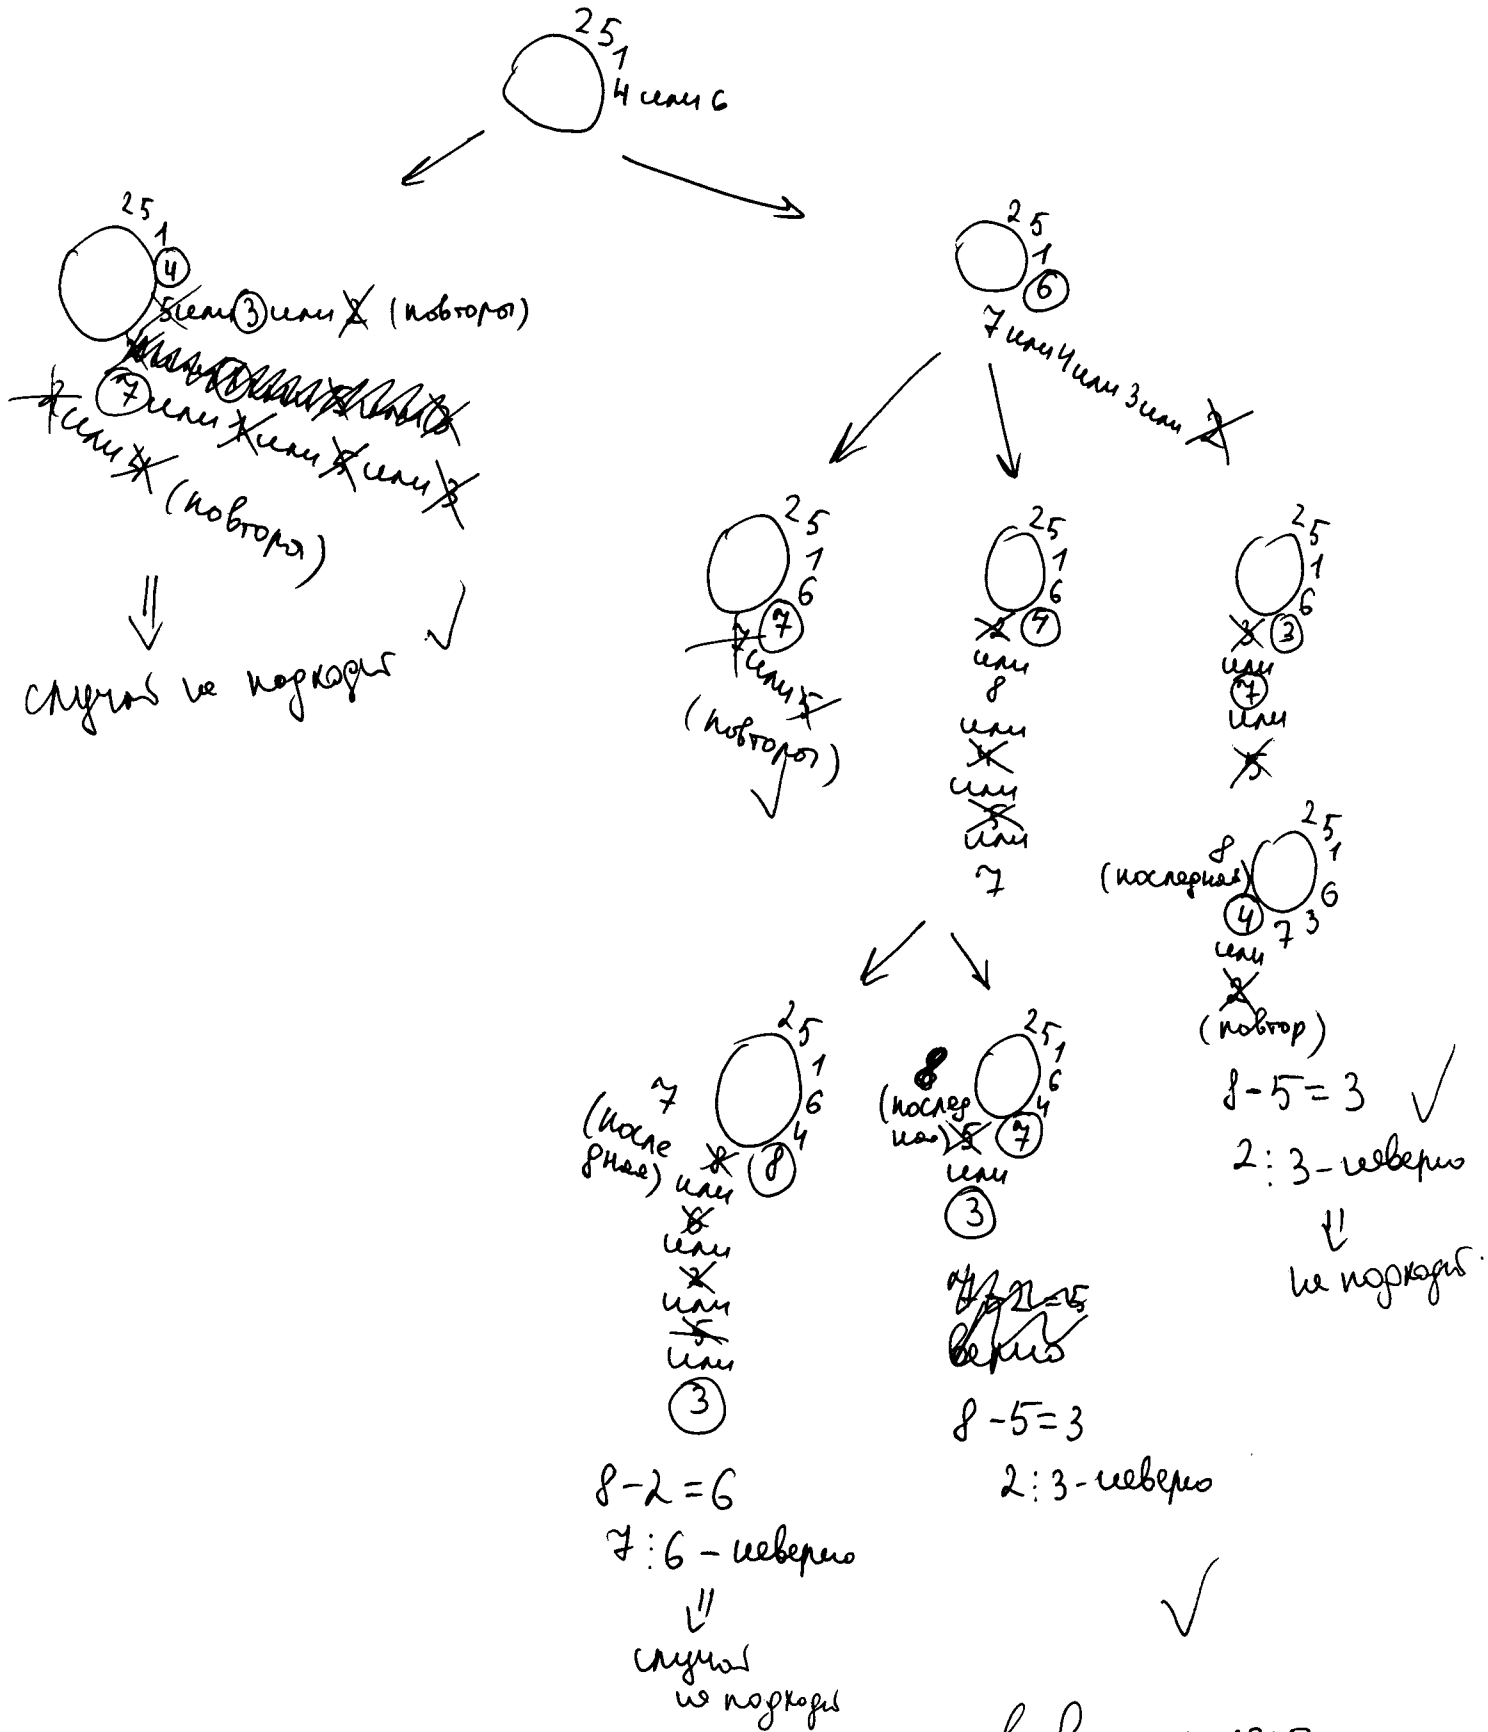 2 5
1
4 или 6
2 5
1
4
5 или 3 или 2 (повторы)
7 или 1 или 5 или 3
1 или 4
(повторы)
⇓
случай не подходит ✓
2 5
1
6
7 или 4 или 3 или 2
2 5
1
6
7
7 или 5
(повторы)
✓
2 5
1
6
2 4
или
8
или
4
или
5
или
7
2 5
1
6
3 3
или
7
или
5
2 5
1
6
3
7
8
(последняя)
4
или
2
(повтор)
8 - 5 = 3 ✓
2 ⋮ 3 - неверно
⇓
не подходит.
2 5
1
6
4
8
7
(после
дняя)
8
или
6
или
2
или
5
или
3
8 - 2 = 6
7 ⋮ 6 - неверно
⇓
случай
не подходит
2 5
1
6
4
7
8
(послед
няя) 5
или
3
7 - 2 = 5
верно
8 - 5 = 3
2 ⋮ 3 - неверно
✓